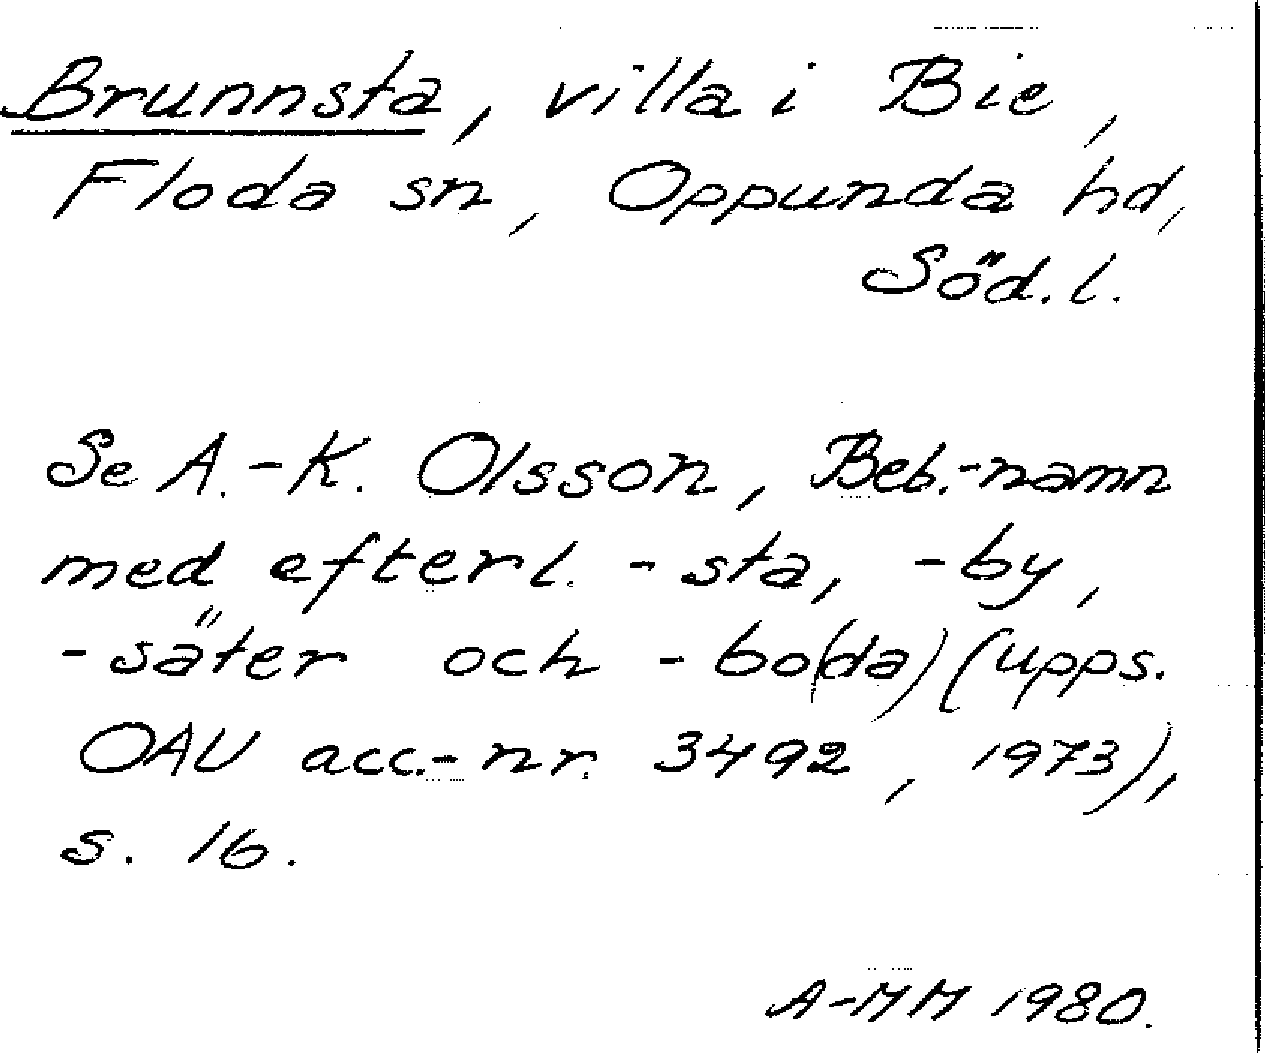 Brunnsta, villa i Bie,
Floda sn, Oppunda hd,
Söd.l.
Se A.-K. Olsson, Beb.-namn
med efterl. -sta, -by,
-säter och -bo(da) (upps.
OAU acc.-nr. 3492, 1973),
s. 16.
A-MM 1980.